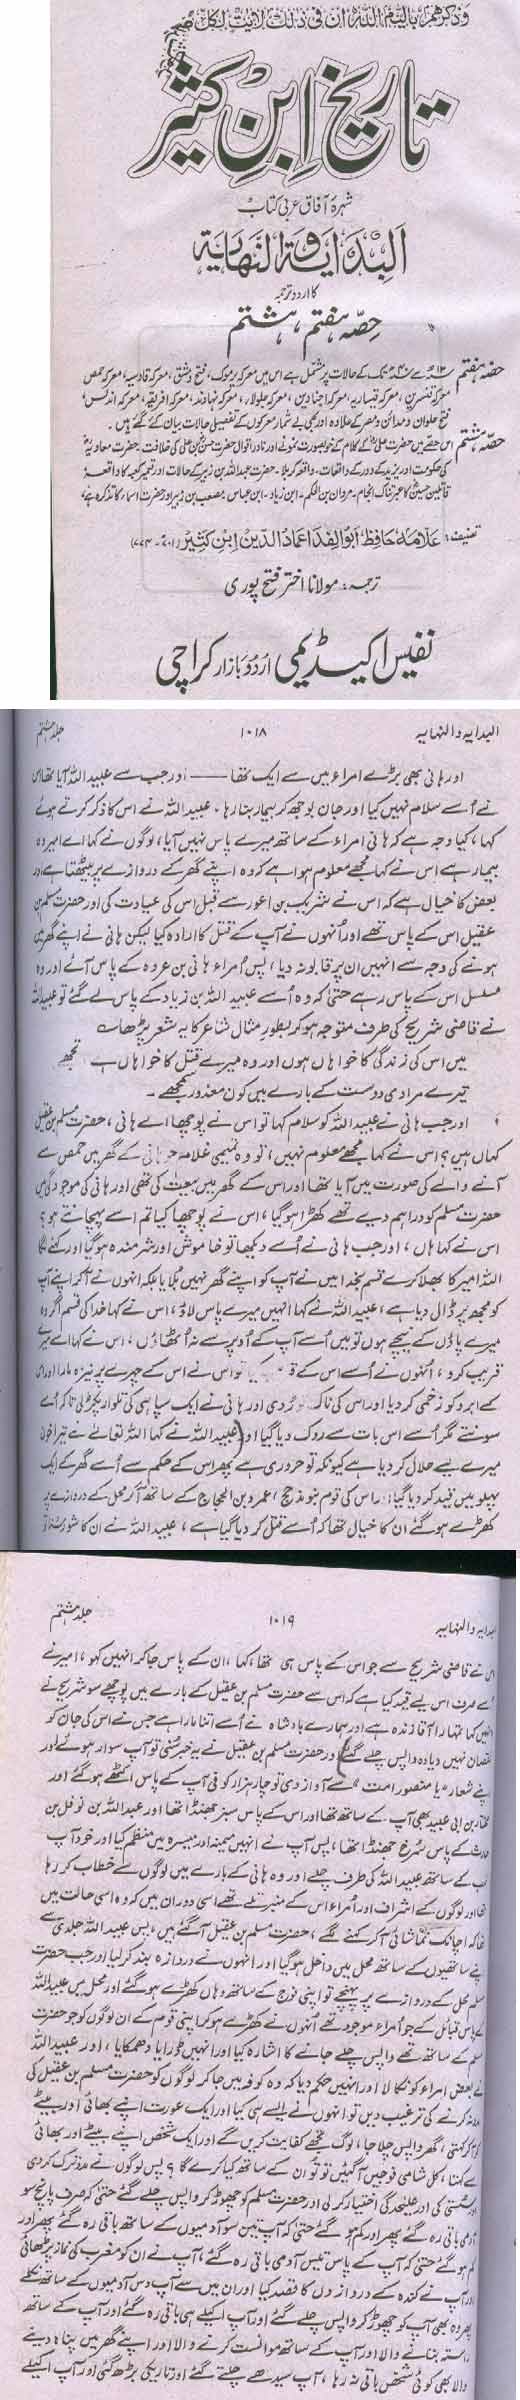 وذكرهم بايام الله ان فى ذلك لايت لكل صبار
تاریخ ابن کثیر
شہرۂ آفاق عربی کتاب
البدایۃ والنہایۃ
کا اردو ترجمہ
حصّہ ہفتم، ہشتم
حصّہ ہفتم سے تک کے حالات پر مشتمل ہے اس میں معرکہ یرموک، فتح دمشق، معرکہ قادسیہ، معرکہ حمص
معرکہ قنسرین، معرکہ قیساریہ، معرکہ اجنادین، معرکہ جلولاء، معرکہ نہاوند، معرکہ افریقہ، معرکہ اندلس،
فتح حلوان ومدائن ومصر کے علاوہ اور بھی بے شمار معرکوں کے تفصیلی حالات بیان کئے گئے ہیں۔
حصّہ ہشتم اس حصے میں حضرت علیؓ کے کلام کے خوبصورت نمونے اور نادر اقوال حضرت حسن بن علی کی خلافت، حضرت معاویہؓ
کی حکومت اور یزید کے دور کے واقعات، واقعہ کربلا۔ حضرت عبداللہ بن زبیر کے حالات اور تعمیر کعبہ کا واقعہ
قاتلین حسینؓ کا عبرتناک انجام۔ مروان بن الحکم۔ ابن زیاد۔ ابن عباس، مصعب بن زبیر اور حضرت اسماء کا تذکرہ ہے،
تصنیف: علامہ حافظ ابوالفدا عماد الدین ابن کثیر (۷۰۱ - ۷۷۴)
ترجمہ: مولانا اختر فتح پوری
نفیس اکیڈیمی اردو بازار کراچی
البدایہ والنہایہ ۱۰۱۸ جلد ہشتم
اور ہانی بھی بڑے امراء میں سے ایک تھا —— اور جب سے عبیداللہ آیا تھا اس
نے اُسے سلام نہیں کیا اور جان بوجھ کر بیمار بنا رہا، عبیداللہ نے اس کا ذکر کرتے ہوئے
کہا، کیا وجہ ہے کہ ہانی امراء کے ساتھ میرے پاس نہیں آیا، لوگوں نے کہا اے امیر وہ
بیمار ہے اس نے کہا مجھے معلوم ہوا ہے کہ وہ اپنے گھر کے دروازے پر بیٹھتا ہے اور
بعض کا خیال ہے کہ اس نے شریک بن اعور سے قبل اس کی عیادت کی اور حضرت مسلم بن
عقیل اس کے پاس تھے اور اُنہوں نے آپ کے قتل کا ارادہ کیا لیکن ہانی نے اپنے گھر میں
ہونے کی وجہ سے انہیں ان پر قابو نہ دیا، پس اُمراء ہانی بن عروہ کے پاس آئے اور وہ
مسلسل اس کے پاس رہے حتیٰ کہ وہ اُسے عبیداللہ بن زیاد کے پاس لے گئے تو عبیداللہ
نے قاضی شریح کی طرف متوجہ ہو کر بطور مثال شاعر کا یہ شعر پڑھا
میں اس کی زندگی کا خواہاں ہوں اور وہ میرے قتل کا خواہاں ہے تجھے
تیرے مرادی دوست کے بارے میں کون معذور سمجھے۔
اور جب ہانی نے عبیداللہ کو سلام کہا تو اس نے پوچھا اے ہانی، حضرت مسلم بن عقیل
کہاں ہیں؟ اس نے کہا مجھے معلوم نہیں، تو وہ تمیمی غلام جو ہانی کے گھر میں حمص سے
آنے والے کی صورت میں آیا تھا اور اس کے گھر میں بیعت کی تھی اور ہانی کی موجودگی میں
حضرت مسلم کو دراہم دیے تھے کھڑا ہو گیا، اس نے پوچھا کیا تم اسے پہچانتے ہو؟
اس نے کہا ہاں، اور جب ہانی نے اُسے دیکھا تو خاموش اور شرمندہ ہو گیا اور کہنے لگا
اللہ امیر کا بھلا کرے قسم بخدا میں نے آپ کو اپنے گھر نہیں بلایا بلکہ انہوں نے آ کر اپنے آپ
کو مجھ پر ڈال دیا ہے، عبیداللہ نے کہا انہیں میرے پاس لاؤ، اس نے کہا خدا کی قسم اگر وہ
میرے پاؤں کے نیچے ہوں تو میں اُسے آپ کے اُوپر سے نہ اُٹھاؤں، اس نے کہا اسے میرے
قریب کرو، اُنہوں نے اُسے اس کے تو اس نے اس کے چہرے پر نیزہ مارا اور اس
کے ابرو کو زخمی کر دیا اور اس کی ناک توڑ دی اور ہانی نے ایک سپاہی کی تلوار پکڑ لی تاکہ اُسے
سونتے مگر اُسے اس بات سے روک دیا گیا اور عبیداللہ نے کہا اللہ تعالیٰ نے تیرا خون
میرے لیے حلال کر دیا ہے کیونکہ تو حروری ہے پھر اس کے حکم سے اُسے گھر کے ایک
پہلو میں قید کر دیا گیا اور اس کی قوم بنو مذحج، عمرو بن الحجاج کے ساتھ آ کر محل کے دروازے پر
کھڑے ہو گئے ان کا خیال تھا کہ اُسے قتل کر دیا گیا ہے، عبیداللہ نے ان کا شور سنا تو
البدایہ والنہایہ ۱۰۱۹ جلد ہشتم
اس نے قاضی شریح سے جو اس کے پاس ہی تھا، کہا، ان کے پاس جا کر انہیں کہو، امیر نے
اُسے صرف اس لیے قید کیا ہے کہ اس سے حضرت مسلم بن عقیل کے بارے میں پوچھے سو شریح نے
انہیں کہا تمہارا آقا زندہ ہے اور ہمارے بادشاہ نے اُسے اتنا مارا ہے جس نے اس کی جان کو
نقصان نہیں دیا وہ واپس چلے گئے اور حضرت مسلم بن عقیل نے یہ خبر سُنی تو آپ سوار ہوئے اور
اپنے شعار "یا منصور امت" سے آواز دی تو چار ہزار کوفی آپ کے پاس اکٹھے ہو گئے اور
مختار بن ابی عبید بھی آپ کے ساتھ تھا اور اس کے پاس سبز جھنڈا تھا اور عبداللہ بن نوفل بن
حارث کے پاس سُرخ جھنڈا تھا، پس آپ نے انہیں میمنہ اور میسرہ میں منظم کیا اور خود آپ
قلب کے ساتھ عبیداللہ کی طرف چلے اور وہ ہانی کے بارے میں لوگوں سے خطاب کر رہا
تھا اور لوگوں کے اشراف اور اُمراء اس کے منبر تلے تھے اسی دوران میں کہ وہ اسی حالت میں
تھا کہ اچانک تماشائی آ کر کہنے لگے، حضرت مسلم بن عقیل آ گئے ہیں، پس عبیداللہ جلدی سے
اپنے ساتھیوں کے ساتھ محل میں داخل ہو گیا اور انہوں نے دروازہ بند کر لیا اور جب حضرت
مسلم محل کے دروازے پر پہنچے تو اپنی فوج کے ساتھ وہاں کھڑے ہو گئے اور محل میں عبیداللہ
کے پاس قبائل کے جو اُمراء موجود تھے اُنہوں نے کھڑے ہو کر اپنی قوم کے ان لوگوں کو جو حضرت
مسلم کے ساتھ تھے واپس چلے جانے کا اشارہ کیا اور انہیں ڈرایا دھمکایا، اور عبیداللہ
نے بعض امراء کو نکالا اور انہیں حکم دیا کہ وہ کوفہ میں جا کر لوگوں کو حضرت مسلم بن عقیل کی
مدد نہ کرنے کی ترغیب دیں تو انہوں نے ایسے ہی کیا اور ایک عورت اپنے بھائی اور بیٹے
کو آ کر کہتی، گھر واپس چلا جا، لوگ تجھے کفایت کریں گے اور ایک شخص اپنے بیٹے اور بھائی
سے کہتا، کل شامی فوجیں آ گئیں تو تُو ان کے ساتھ کیا کرے گا؟ پس لوگوں نے مدد ترک کر دی
اور سستی کی اور علیحدگی اختیار کر لی اور حضرت مسلم کو چھوڑ کر واپس چلے گئے حتیٰ کہ صرف پانچ سو
آدمی باقی رہ گئے پھر اور کم ہو گئے حتیٰ کہ آپ تین سو آدمیوں کے ساتھ باقی رہ گئے پھر اور
کم ہو گئے حتیٰ کہ آپ کے پاس تیس آدمی باقی رہ گئے، آپ نے ان کو مغرب کی نماز پڑھائی
اور آپ نے کندہ کے دروازوں کا قصد کیا اور ان میں سے آپ دس آدمیوں کے ساتھ نکلے
پھر وہ بھی آپ کو چھوڑ کر واپس چلے گئے اور آپ اکیلے ہی باقی رہ گئے اور آپ کے ساتھ
راستہ بتانے والا اور آپ کے ساتھ موانست کرنے والا اور اپنے گھر میں پناہ دینے
والا بھی کوئی شخص باقی نہ رہا، آپ سیدھے چلتے گئے اور تاریکی بڑھ گئی اور آپ اکیلے